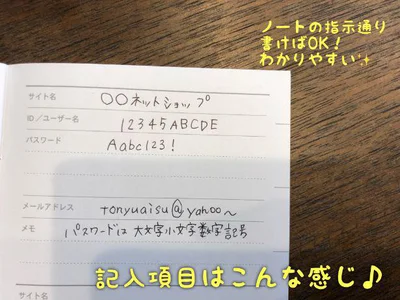 ノートの指示通り
書けばOK！
わかりやすい✨
サイト名 〇〇ネットショップ
ID／ユーザー名 12345ABCDE
パスワード Aabc123!
メールアドレス tonyuaisu@yahoo〜
メモ パスワードは大文字小文字数字記号
サイト名
記入項目はこんな感じ♪